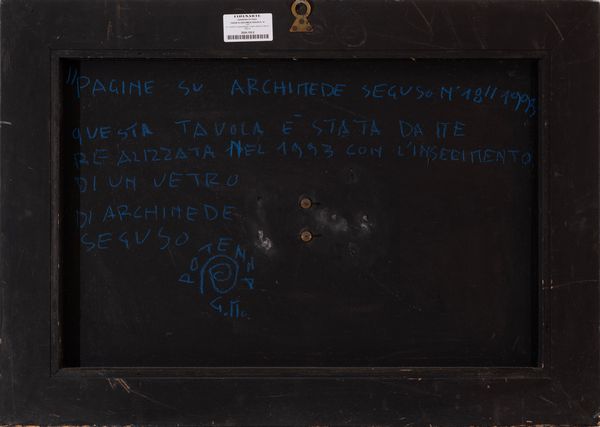 FIDESARTE
"PAGINE SU ARCHIMEDE SEGUSO N°18" 1993
QUESTA TAVOLA E' STATA DA ME
REALIZZATA NEL 1993 CON L'INSERIMENTO
DI UN VETRO
DI ARCHIMEDE
SEGUSO
POTENNA
G.Mo.